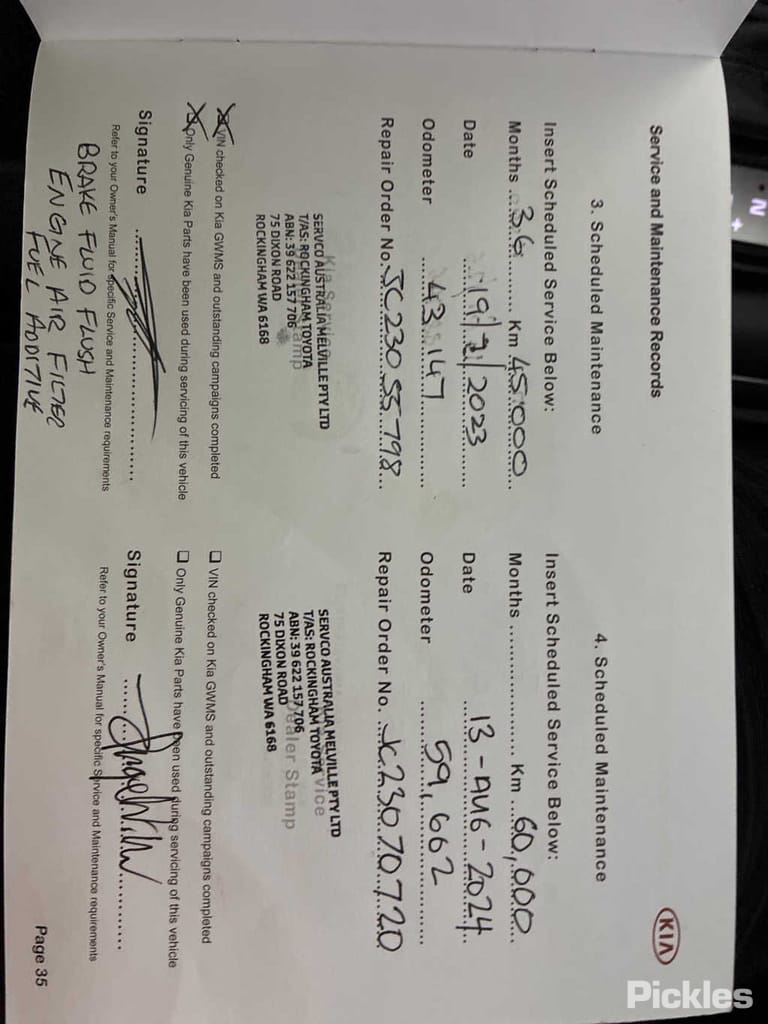 Service and Maintenance Records
KIA
3. Scheduled Maintenance
Insert Scheduled Service Below:
Months 36 Km 45.000
Date 19/2/2023
Odometer 43 147
Repair Order No. JC230 55 798
Kia Service
SERVCO AUSTRALIA MELVILLE PTY LTD
T/AS: ROCKINGHAM TOYOTA
ABN: 39 622 157 706
75 DIXON ROAD
ROCKINGHAM WA 6168
VIN checked on Kia GWMS and outstanding campaigns completed
Only Genuine Kia Parts have been used during servicing of this vehicle
Signature
Refer to your Owner's Manual for specific Service and Maintenance requirements
BRAKE FLUID FLUSH
ENGINE AIR FILTER
FUEL ADDITIVE
4. Scheduled Maintenance
Insert Scheduled Service Below:
Months Km 60,000
Date 13-AUG-2024
Odometer 59,662
Repair Order No. JC23070720
SERVCO AUSTRALIA MELVILLE PTY LTD
T/AS: ROCKINGHAM TOYOTA
ABN: 39 622 157 706
Dealer Stamp
75 DIXON ROAD
ROCKINGHAM WA 6168
VIN checked on Kia GWMS and outstanding campaigns completed
Only Genuine Kia Parts have been used during servicing of this vehicle
Signature
Refer to your Owner's Manual for specific Service and Maintenance requirements
Page 35
N
Pickles